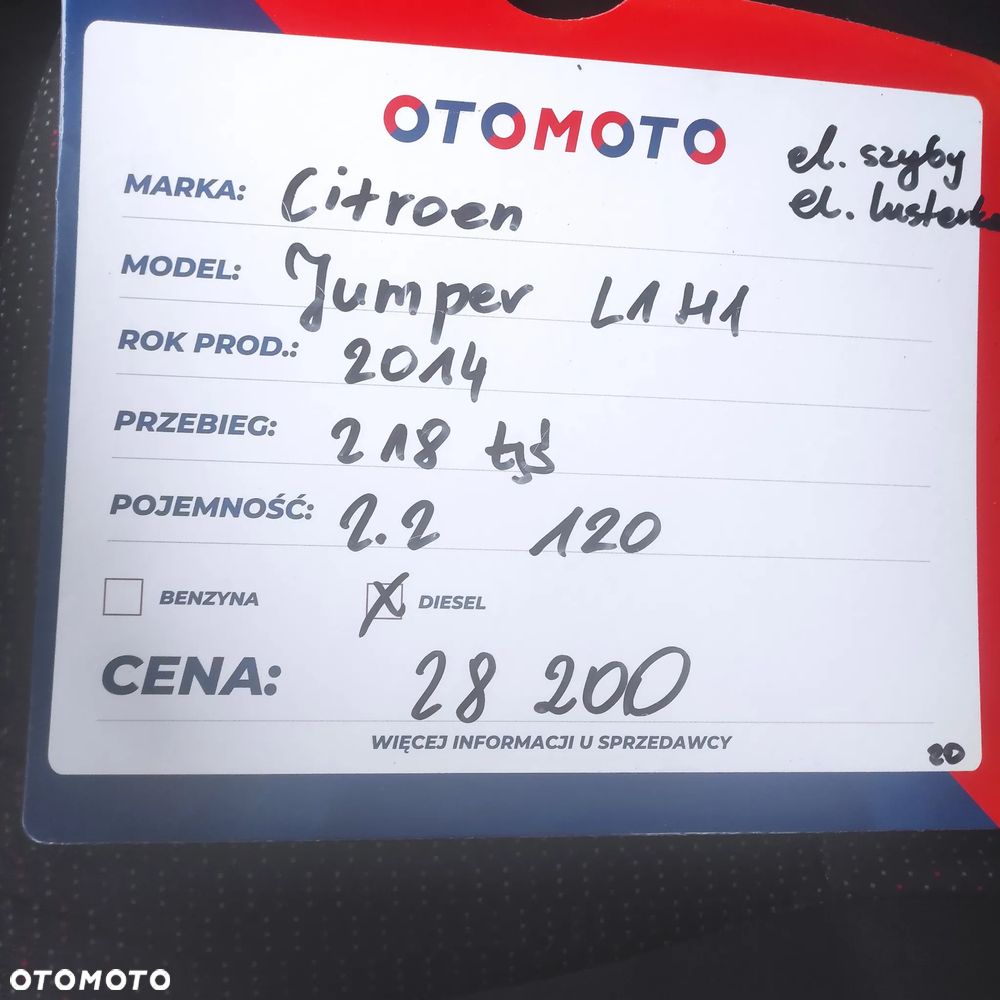 OTOMOTO
el. szyby
el. lusterka
MARKA: Citroen
MODEL: Jumper L1H1
ROK PROD.: 2014
PRZEBIEG: 218 tyś
POJEMNOŚĆ: 2.2 120
BENZYNA X DIESEL
CENA: 28 200
WIĘCEJ INFORMACJI U SPRZEDAWCY
20
OTOMOTO